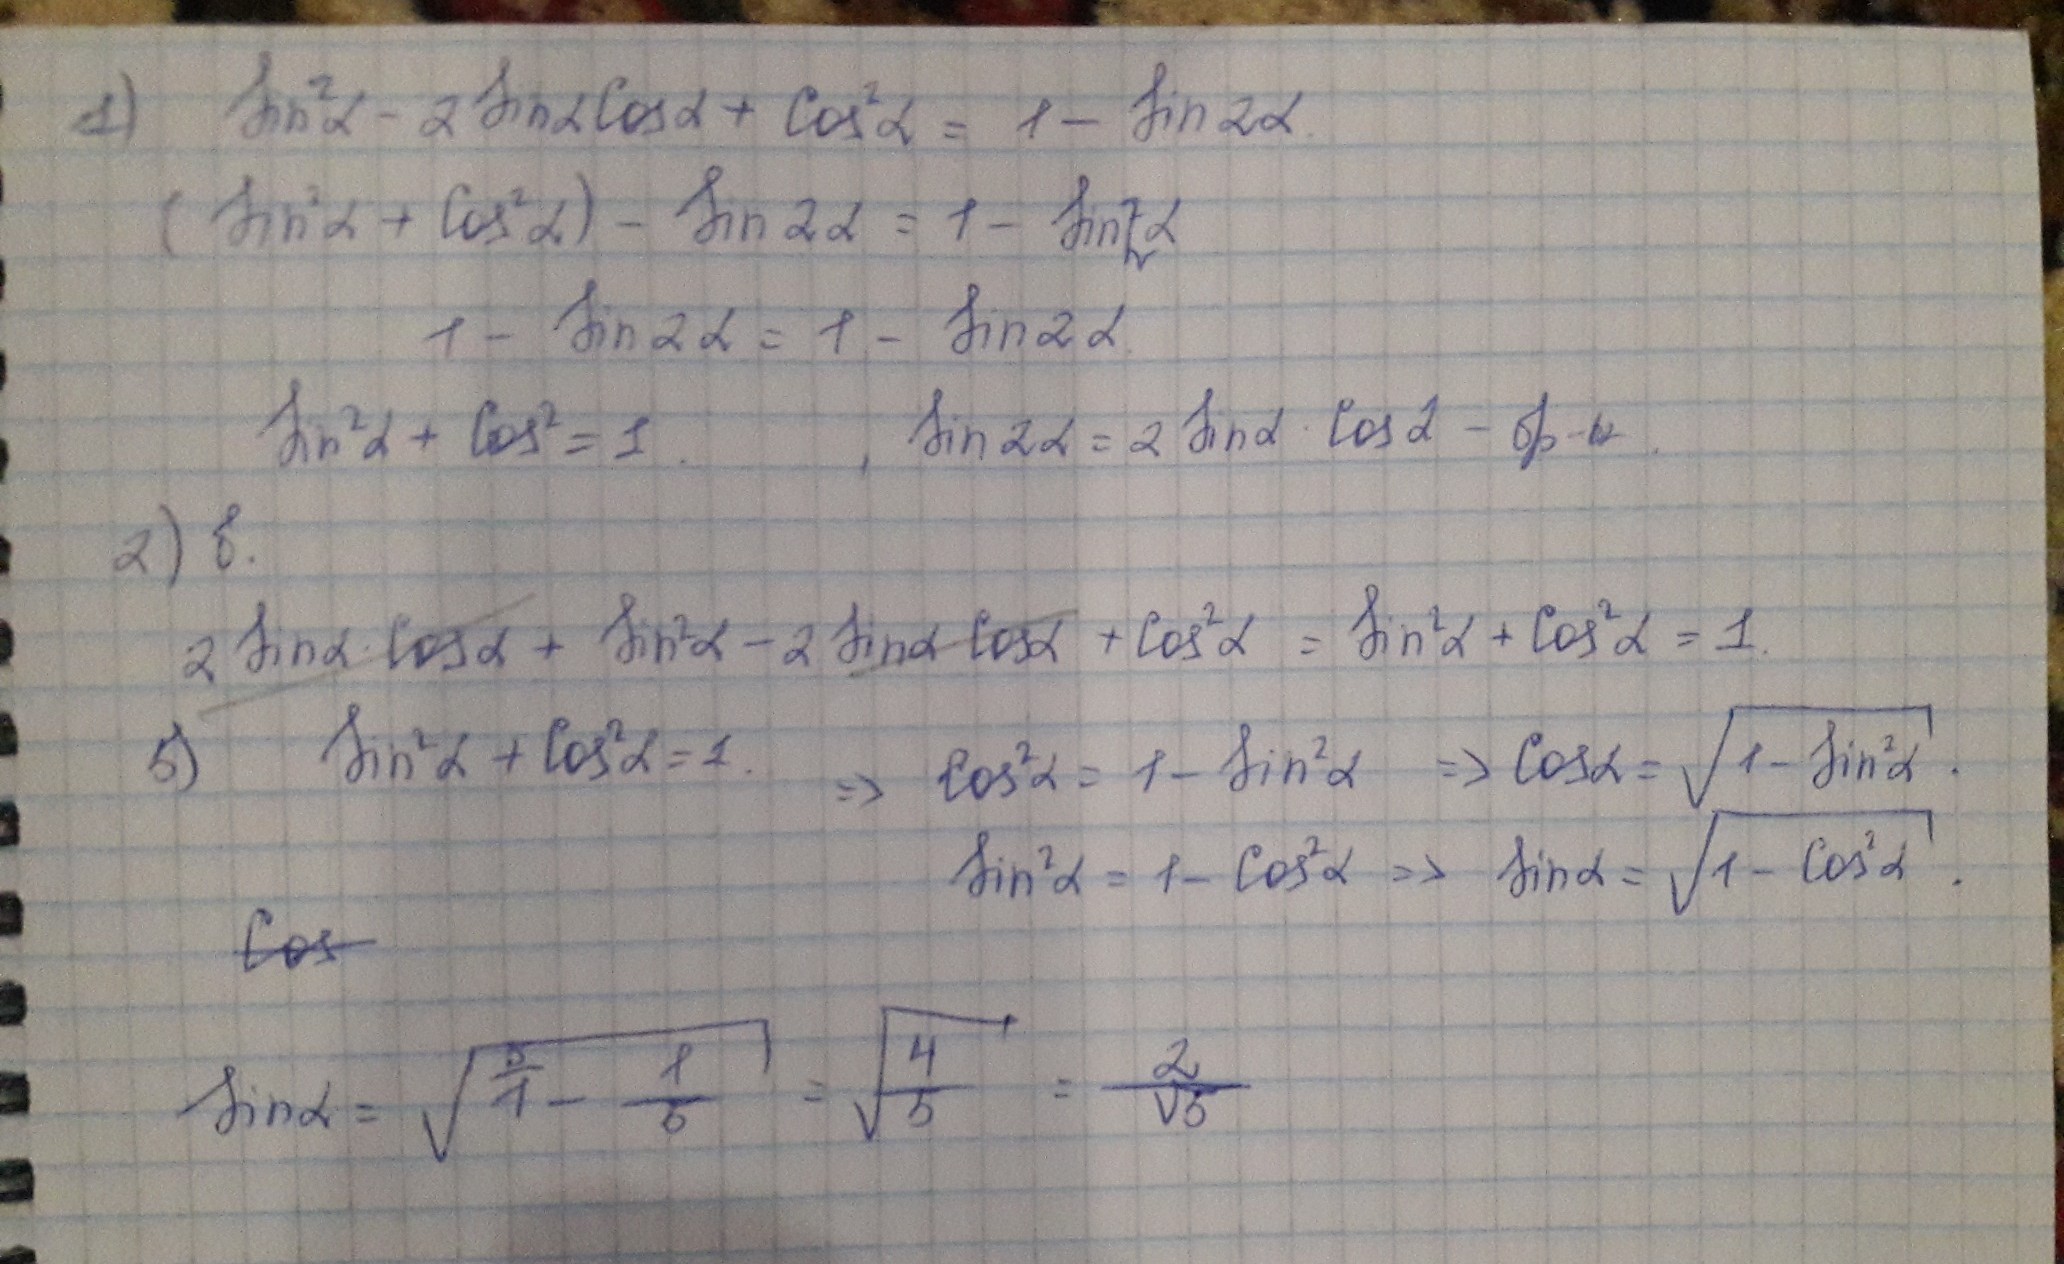 1) Sin²α - 2 Sinα Cosα + Cos²α = 1 - Sin 2α.
( Sin²α + Cos²α) - Sin 2α = 1 - Sin 2α
1 - Sin 2α = 1 - Sin 2α.
Sin²α + Cos² = 1. , Sin 2α = 2 Sinα · Cos α - ор-ла.
2) б.
2 Sinα · Cosα + Sin²α - 2 Sinα Cosα + Cos²α = Sin²α + Cos²α = 1.
5) Sin²α + Cos²α = 1. => Cos²α = 1 - Sin²α => Cosα = √(1 - Sin²α).
Sin²α = 1 - Cos²α => Sinα = √(1 - Cos²α).
Cos
Sinα = √(5/1 - 1/5) = √(4/5) = 2/√5